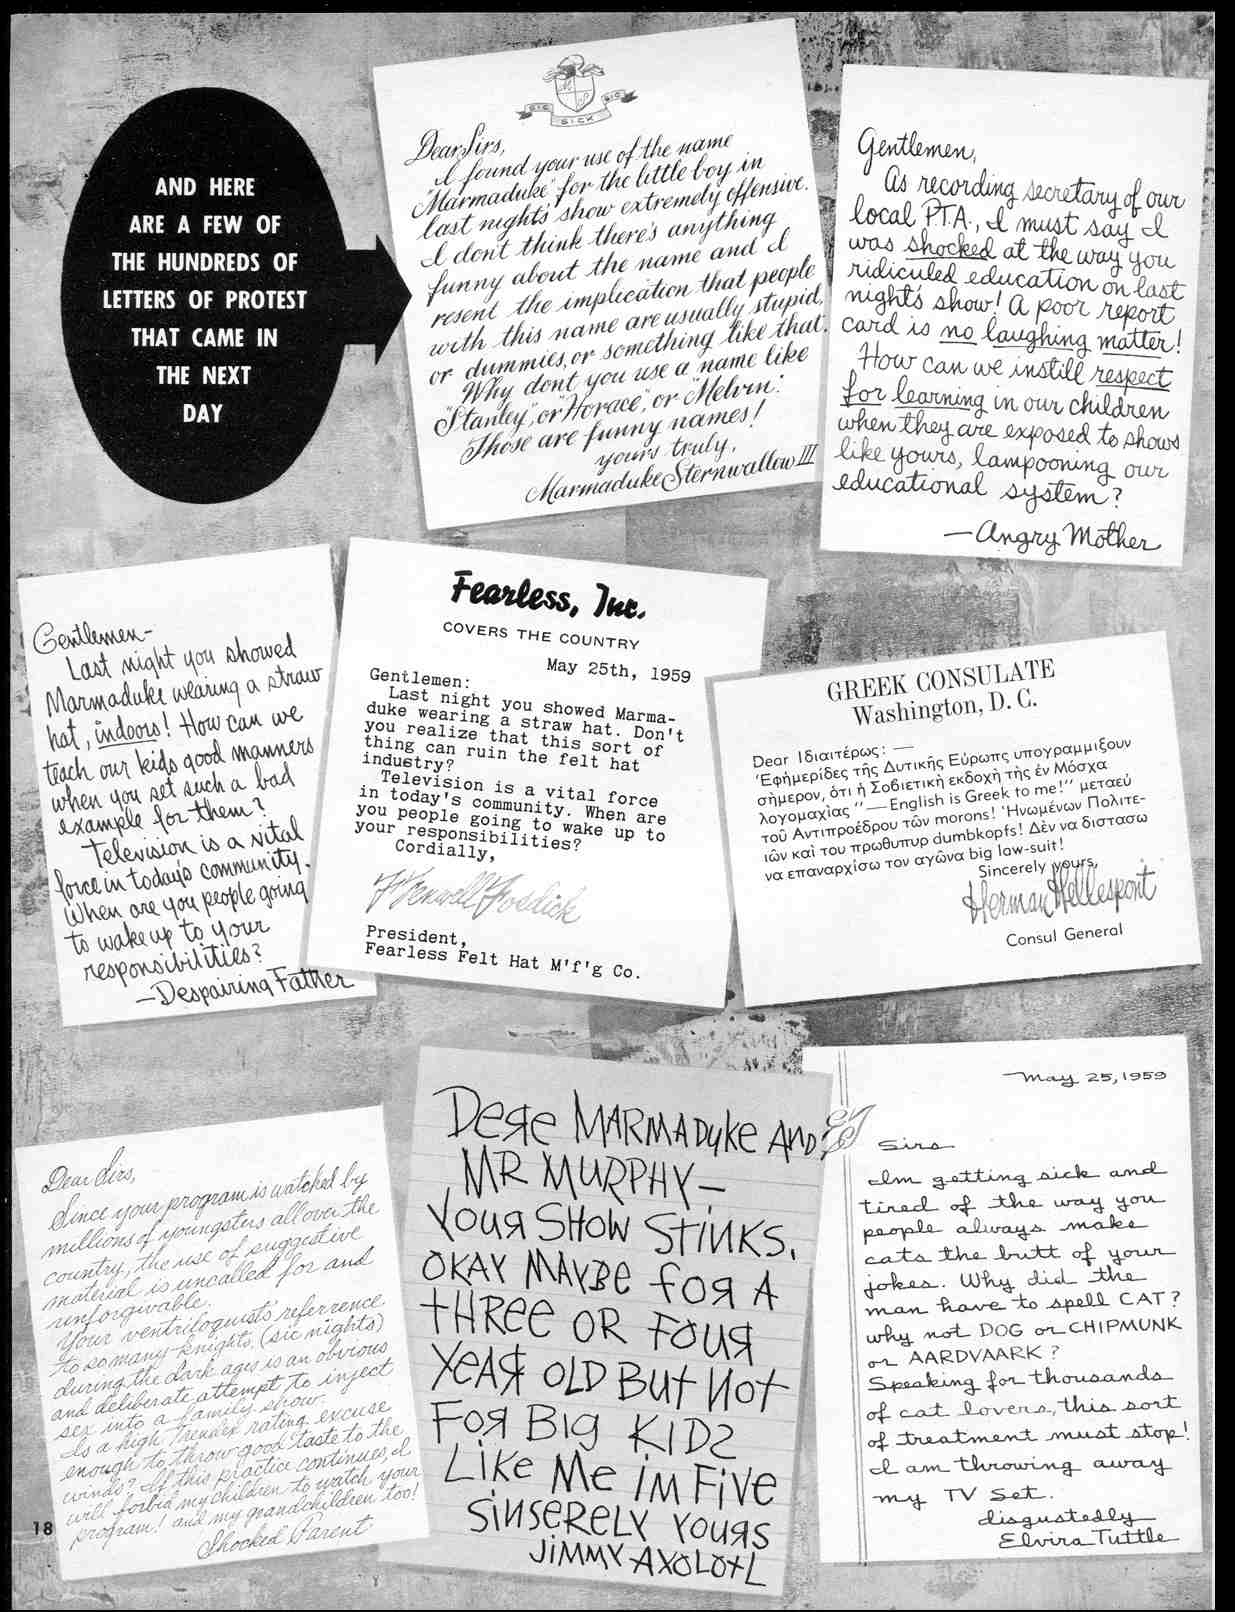 AND HERE
ARE A FEW OF
THE HUNDREDS OF
LETTERS OF PROTEST
THAT CAME IN
THE NEXT
DAY
SIC
SICK
SIC
Dear Sirs,
I found your use of the name
"Marmaduke", for the little boy in
last night's show extremely offensive.
I don't think there's anything
funny about the name and I
resent the implication that people
with this name are usually stupid,
or dummies, or something like that.
Why don't you use a name like
"Stanley", or "Horace", or "Melvin".
Those are funny names!
yours truly,
Marmaduke Sternwallow III
Gentlemen,
As recording secretary of our
local P.T.A., I must say I
was shocked at the way you
ridiculed education on last
night's show! A poor report
card is no laughing matter!
How can we instill respect
for learning in our children
when they are exposed to shows
like yours, lampooning our
educational system?
—Angry Mother
Gentlemen—
Last night you showed
Marmaduke wearing a straw
hat, indoors! How can we
teach our kids good manners
when you set such a bad
example for them?
Television is a vital
force in today's community.
When are you people going
to wake up to your
responsibilities?
—Despairing Father
Fearless, Inc.
COVERS THE COUNTRY
May 25th, 1959
Gentlemen:
Last night you showed Marma-
duke wearing a straw hat. Don't
you realize that this sort of
thing can ruin the felt hat
industry?
Television is a vital force
in today's community. When are
you people going to wake up to
your responsibilities?
Cordially,
F. Fenwell Fosdick
President,
Fearless Felt Hat M'f'g Co.
GREEK CONSULATE
Washington, D. C.
Dear Ιδιαιτέρως: —
Ἐφημερίδες τῆς Δυτικῆς Εὐρωπς υπογραμμιξουν
σήμερον, ὁτι ἡ Σοβιετικὴ εκδοχὴ τῆς ἐν Μόσχα
λογομαχίας "— English is Greek to me!" μεταεύ
τοῦ Αντιπροέδρου τῶν morons! Ἡνωμένων Πολιτε-
ιῶν καὶ του πρωθυπυρ dumbkopfs! Δὲν να διστασω
να επαναρχίσω τον αγῶνα big law-suit!
Sincerely yours,
Herman Hellespont
Consul General
Dear Sirs,
Since your program is watched by
millions of youngsters all over the
country, the use of suggestive
material is uncalled for and
unforgivable.
Your ventriloquist's referrence
to so many knights, (sic nights)
during the dark ages is an obvious
and deliberate attempt to inject
sex into a family show.
Is a high Trendex rating excuse
enough to throw good taste to the
winds? If this practice continues, I
will forbid my children to watch your
program! and my grandchildren too!
Shocked Parent
DeRe MARMADUKe AND
MR MURPHY—
YOUR SHOW STINKS.
OKAY MAYBE FOR A
tHRee OR FOUR
YeAR OLD BUt NOt
FOR BIg KIDS
LiKe Me iM FiVe
SiNSeRELY YOURS
JiMMY AXOLOtL
May 25, 1959
Sirs
I'm getting sick and
tired of the way you
people always make
cats the butt of your
jokes. Why did the
man have to spell CAT?
why not DOG or CHIPMUNK
or AARDVAARK?
Speaking for thousands
of cat lovers, this sort
of treatment must stop!
I am throwing away
my TV set.
disgustedly
Elvira Tuttle
18